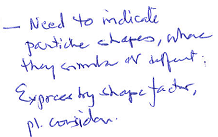 — Need to indicate
particle shapes, where
they similar or different.
Express by shape factor,
pl. consider.